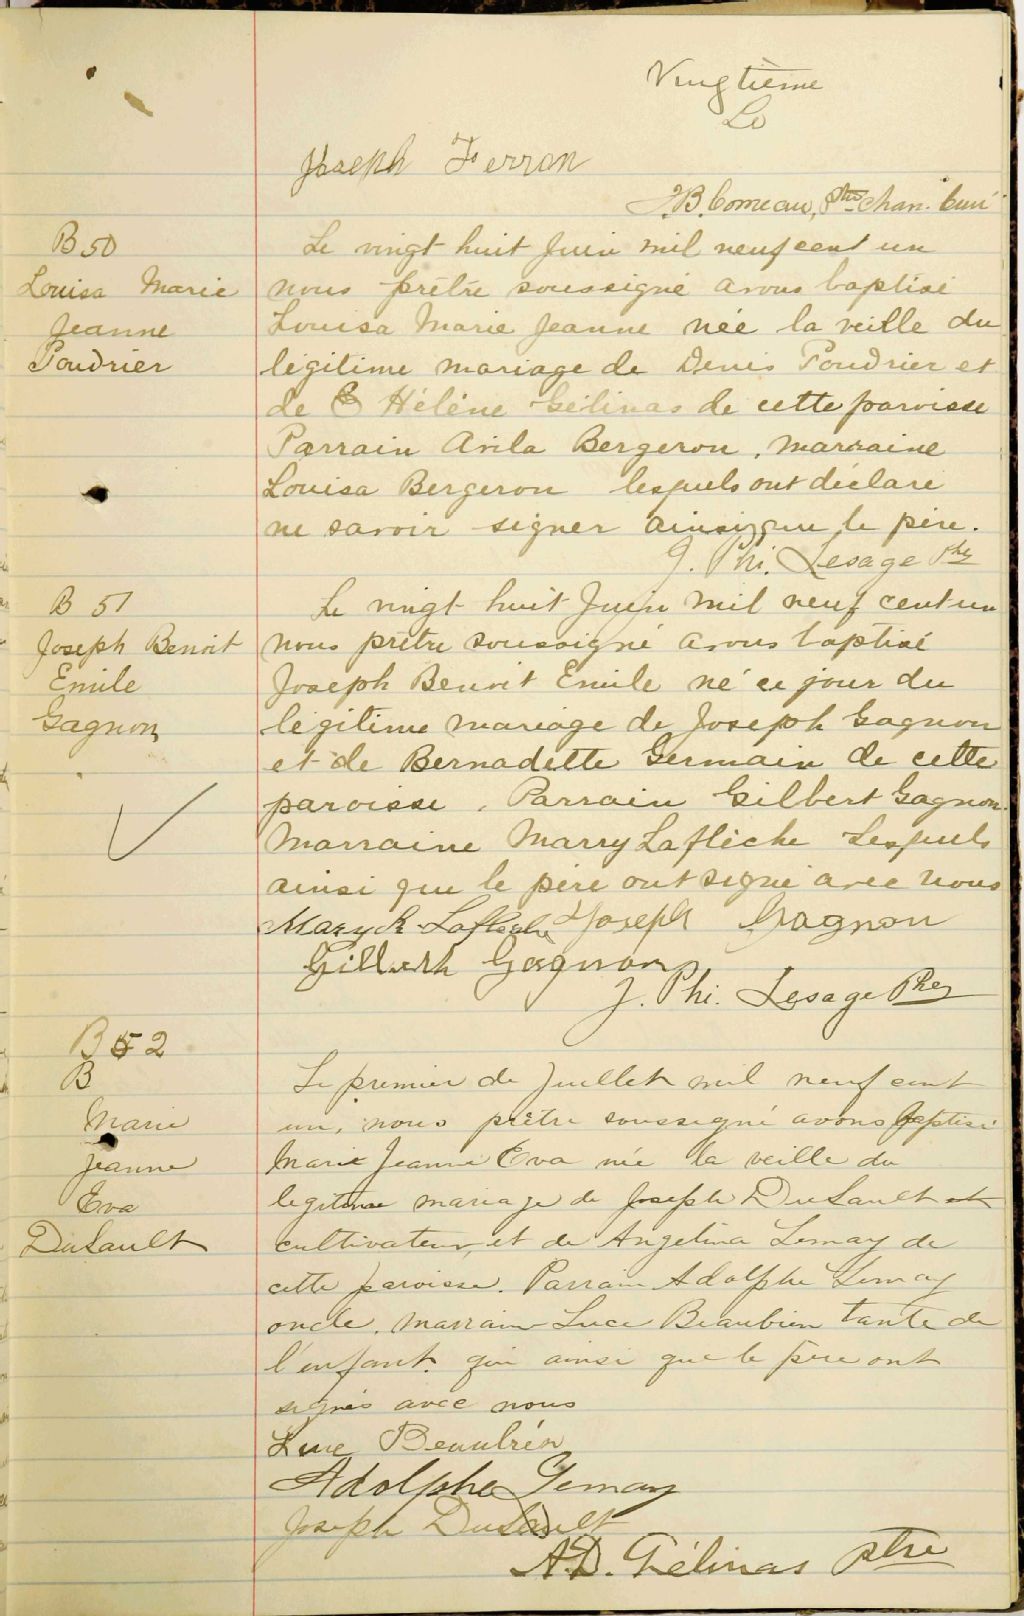 Vingtième
Le
Joseph Ferron
J.B. Comeau, Ptre chan. Curé
B 50
Louisa Marie
Jeanne
Poudrier
Le vingt huit Juin mil neuf cent un
nous prêtre soussigné avons baptisé
Louisa Marie Jeanne née la veille du
légitime mariage de Denis Poudrier et
de Hélène Gélinas de cette paroisse
Parrain Avila Bergeron, marraine
Louisa Bergeron lesquels ont déclaré
ne savoir signer ainsi que le père.
J. Phi. Lesage Ptre
B 51
Joseph Benoit
Emile
Gagnon
Le vingt huit Juin mil neuf cent un
nous prêtre soussigné avons baptisé
Joseph Benoit Emile né ce jour du
légitime mariage de Joseph Gagnon
et de Bernadette Germain de cette
paroisse. Parrain Gilbert Gagnon
Marraine Marry Laflèche Lesquels
ainsi que le père ont signé avec nous
Mary R Laflèche Joseph Gagnon
Gilberth Gagnon
J. Phi. Lesage Ptre
B 52
B
Marie
Jeanne
Eva
DuSault
Le premier de Juillet mil neuf cent
un, nous prêtre soussigné avons baptisé
Marie Jeanne Eva née la veille du
legitime mariage de Joseph DuSault et
cultivateur, et de Angelina Lemay de
cette paroisse. Parrain Adolphe Lemay
oncle, marraine Luce Beaubien tante de
l'enfant. qui ainsi que le père ont
signés avec nous
Luce Beaubien
Adolphe Lemay
Joseph DuSault
A.D. Gélinas ptre